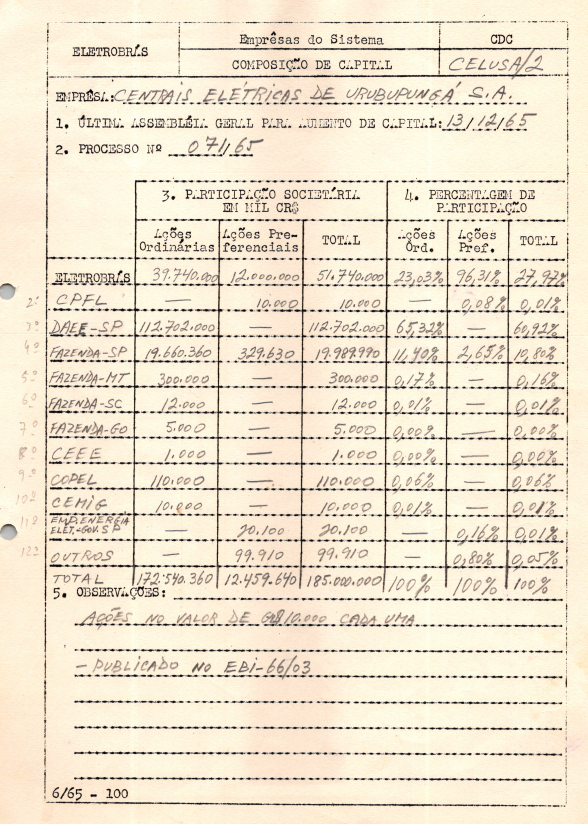 ELETROBRÁS
Emprêsas do Sistema
CDC
COMPOSIÇÃO DE CAPITAL
CELUSA/2
EMPRÊSA: CENTRAIS ELÉTRICAS DE URUBUPUNGÁ S.A.
1. ÚLTIMA ASSEMBLÉIA GERAL PARA AUMENTO DE CAPITAL: 13/12/65
2. PROCESSO Nº 071/65
3. PARTICIPAÇÃO SOCIETÁRIA EM MIL CR$
4. PERCENTAGEM DE PARTICIPAÇÃO
Ações Ordinárias Ações Preferenciais TOTAL Ações Ord. Ações Pref. TOTAL
ELETROBRÁS 39.740.000 12.000.000 51.740.000 23,03% 96,31% 27,97%
2º CPFL — 10.000 10.000 — 0,08% 0,01%
3º DAEE-SP 112.702.000 — 112.702.000 65,32% — 60,92%
4º FAZENDA-SP 19.660.360 329.630 19.989.990 11,40% 2,65% 10,80%
5º FAZENDA-MT 300.000 — 300.000 0,17% — 0,16%
6º FAZENDA-SC 12.000 — 12.000 0,01% — 0,01%
7º FAZENDA-GO 5.000 — 5.000 0,00% — 0,00%
8º CEEE 1.000 — 1.000 0,00% — 0,00%
9º COPEL 110.000 — 110.000 0,06% — 0,06%
10º CEMIG 10.000 — 10.000 0,01% — 0,01%
11º EMP. ENERGIA ELET.-GOV. SP — 20.100 20.100 — 0,16% 0,01%
12º OUTROS — 99.910 99.910 — 0,80% 0,05%
TOTAL 172.540.360 12.459.640 185.000.000 100% 100% 100%
5. OBSERVAÇÕES:
AÇÕES NO VALOR DE CR$10.000 CADA UMA
- PUBLICADO NO EBI-66/03
6/65 - 100